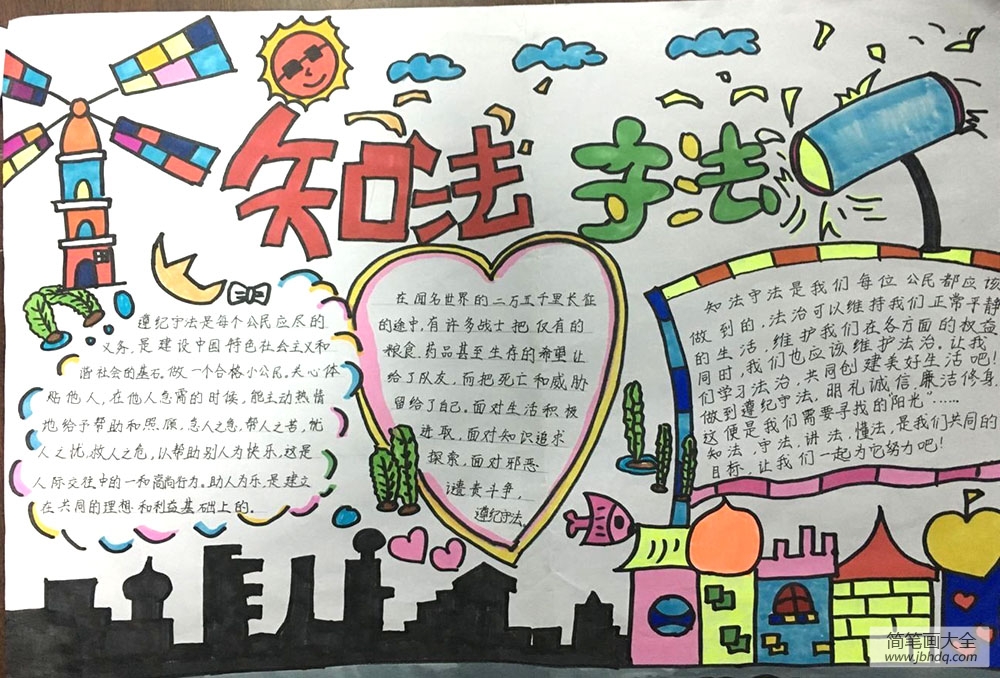 知法守法
遵纪守法是每个公民应尽的
义务,是建设中国特色社会主义和
谐社会的基石。做一个合格小公民。关心体
贴他人,在他人急需的时候,能主动热情
地给予帮助和照顾,急人之急,帮人之苦,忧
人之忧,救人之危,以帮助别人为快乐,这是
人际交往中的一种高尚行为。助人为乐,是建立
在共同的理想和利益基础上的。
在闻名世界的二万五千里长征
的途中,有许多战士把仅有的
粮食,药品甚至生存的希望让
给了队友,而把死亡和威胁
留给了自己。面对生活积极
进取,面对知识追求
探索,面对邪恶
谴责斗争,
遵纪守法。
知法守法是我们每位公民都应该
做到的,法治可以维持我们正常平静
的生活,维护我们在各方面的权益
同时,我们也应该维护法治。让我
们学习法治,共同创建美好生活吧!
做到遵纪守法,明礼诚信,廉洁修身,
这便是我们需要寻找的“阳光”……
知法,守法,讲法,懂法,是我们共同的
目标,让我们一起为它努力吧!
简笔画大全
www.jbhdq.com